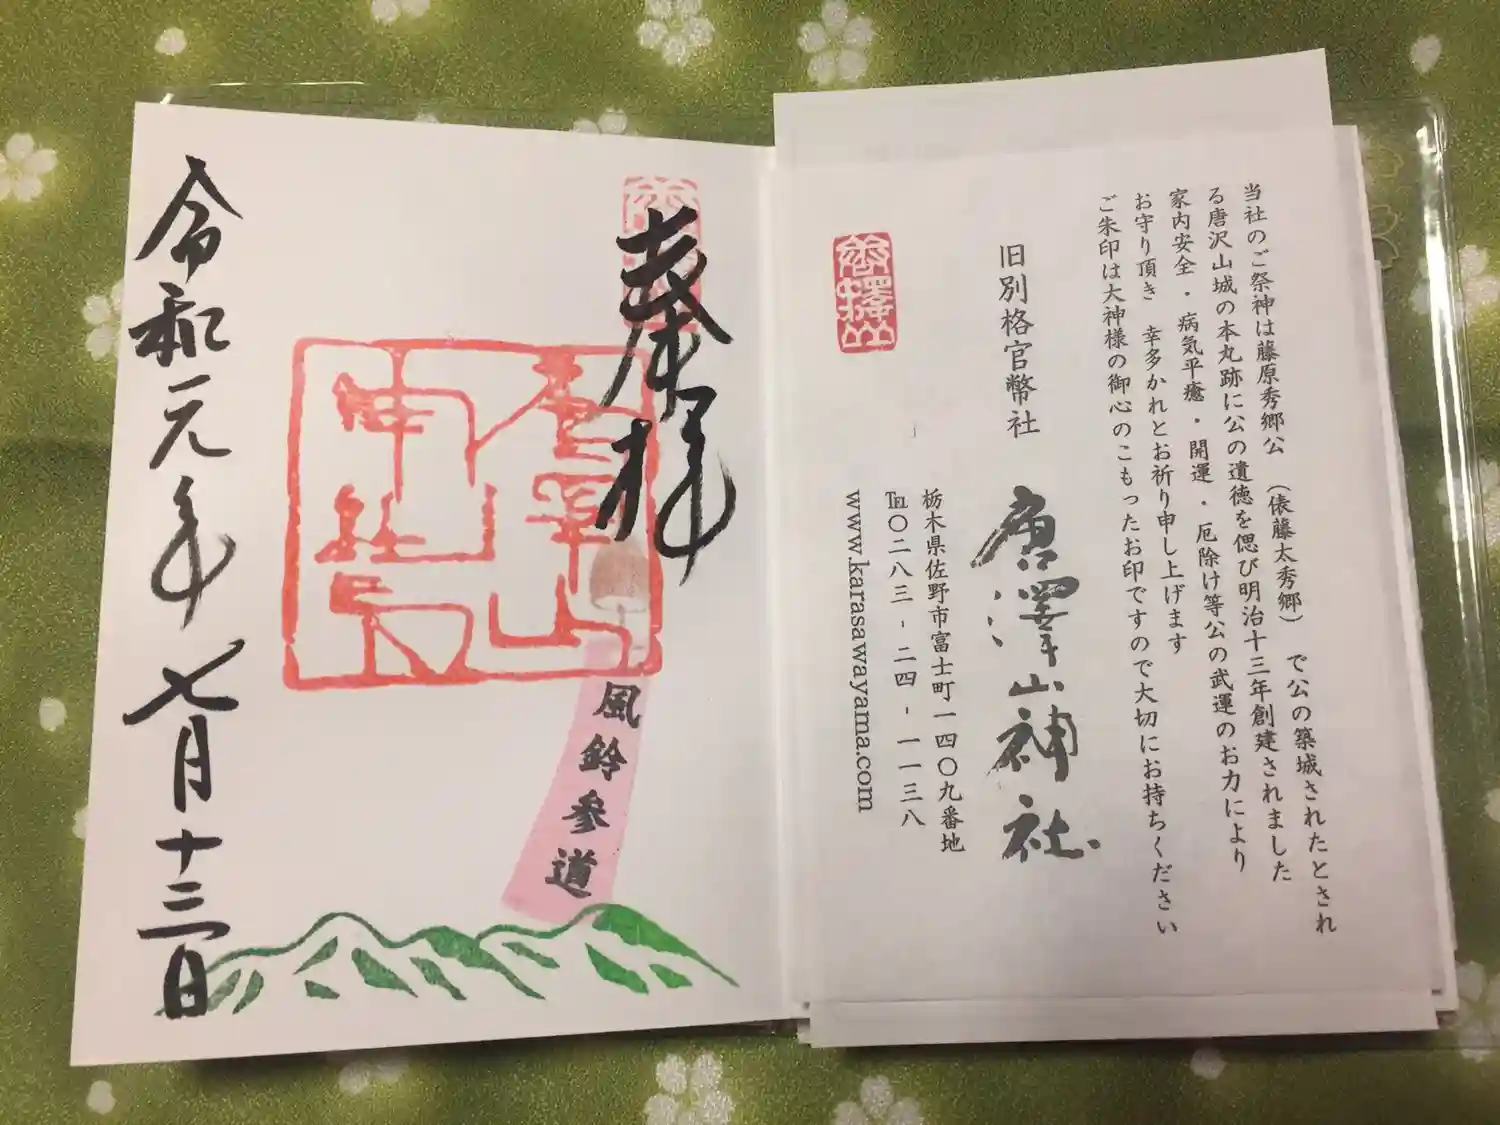 当社のご祭神は藤原秀郷公（俵藤太秀郷）で公の築城されたとされ
る唐沢山城の本丸跡に公の遺徳を偲び明治十三年創建されました
家内安全・病気平癒・開運・厄除け等公の武運のお力により
お守り頂き　幸多かれとお祈り申し上げます
ご朱印は大神様の御心のこもったお印ですので大切にお持ちください
旧別格官幣社　唐澤山神社
栃木県佐野市富士町一四〇九番地
℡〇二八三-二四-一一三八
www.karasawayama.com
唐澤山
奉拝
唐澤山
神社
風鈴参道
令和元年七月十三日